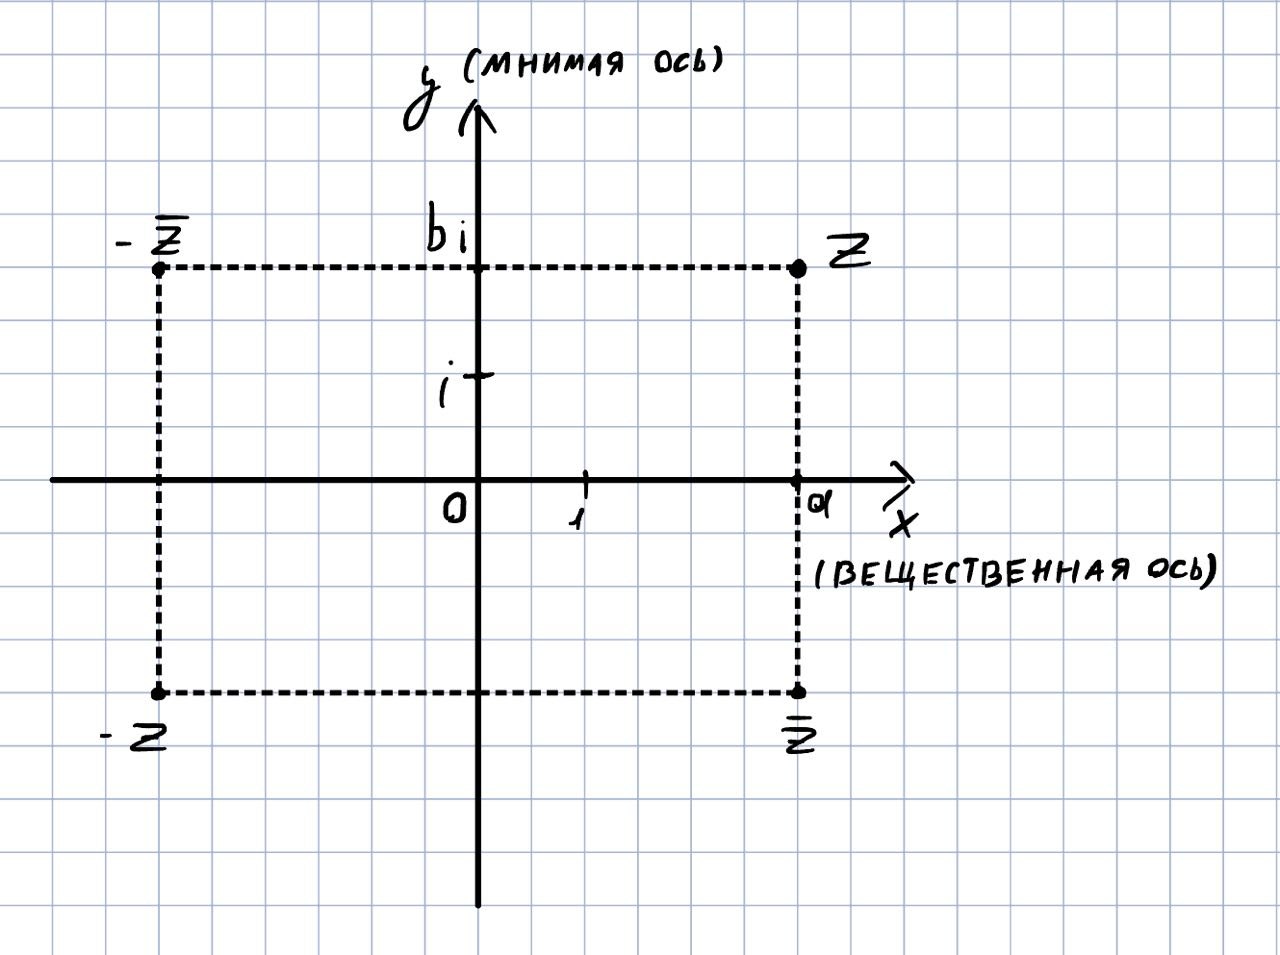 y (мнимая ось)
- z̅
bi
z
i
0
1
a
x
(вещественная ось)
- z
z̅